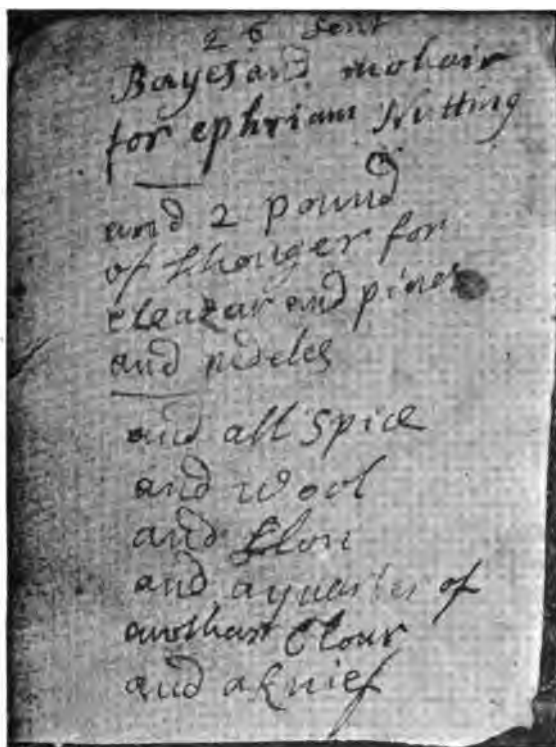 26 sent
Bayes and mohair
for ephriam Nutting
and 2 pound
of shouger for
eleazar and pines
and nedeles
and all spice
and wool
and
and a quarter of
another
and a knief